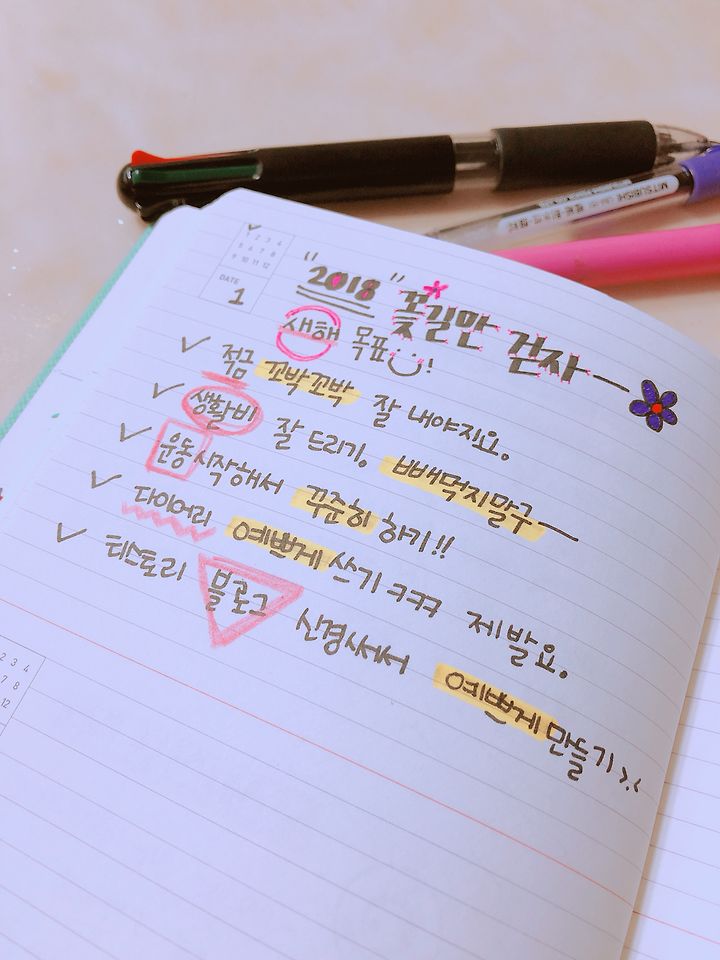 1 2 3 4
5 6 7 8
9 10 11 12
DATE
1
"2018" 꽃길만 걷자~
새해 목표!
✓ 적금 꼬박꼬박 잘 내야지요.
✓ 생활비 잘 드리기. 빼먹지말구~
✓ 운동시작해서 꾸준히 하기!!
✓ 다이어리 예쁘게 쓰기 ㅋㅋㅋ 제발요.
✓ 티스토리 블로그 신경써서 예쁘게 만들기 >.<
2 3 4
7 8
12
MITSUBISHI